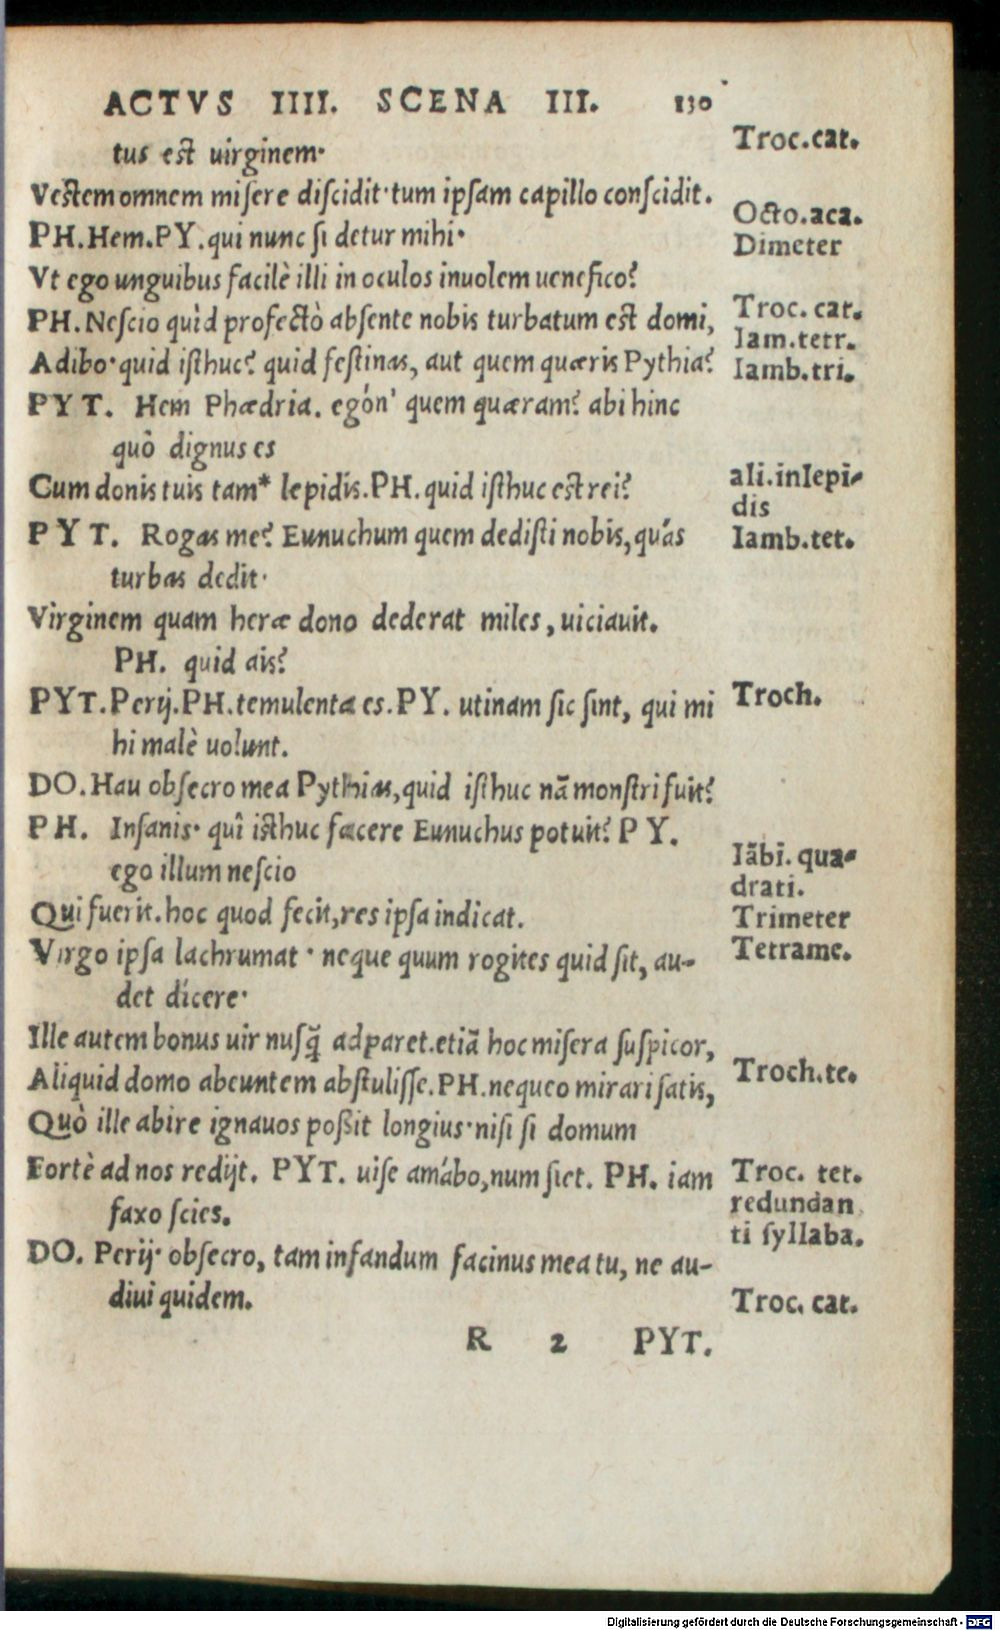 ACTVS IIII. SCENA III. 130
tus est uirginem·
Troc.cat.
Vestem omnem misere discidit·tum ipsam capillo conscidit.
PH.Hem.PY.qui nunc si detur mihi·
Octo.aca.
Dimeter
Vt ego unguibus facilè illi in oculos inuolem uenefico?
PH.Nescio quìd profectò absente nobis turbatum est domi,
Troc. cat.
Adibo·quid isthuc? quid festinas, aut quem quæris Pythia?
Iam.tetr.
Iamb.tri.
PYT. Hem Phædria. egón' quem quæram? abi hinc
quò dignus es
Cum donis tuis tam* lepidis.PH.quid isthuc est rei?
ali.inlepi-
dis
PYT. Rogas me? Eunuchum quem dedisti nobis,quás
Iamb.tet.
turbas dedit·
Virginem quam heræ dono dederat miles, uiciauit.
PH. quid ais?
PYT.Perij.PH.temulenta es.PY. utinam sic sint, qui mi
Troch.
hi malè uolunt.
DO.Hau obsecro mea Pythias,quid isthuc nã monstri fuit?
PH. Insanis· quî isthuc facere Eunuchus potuit? PY.
ego illum nescio
Iãbi. qua-
drati.
Qui fuerit.hoc quod fecit,res ipsa indicat.
Trimeter
Virgo ipsa lachrumat · neque quum rogites quid sit, au-
Tetrame.
det dícere·
Ille autem bonus uir nusq̃ adparet.etiã hoc misera suspicor,
Aliquid domo abeuntem abstulisse.PH.nequeo mirari satis,
Troch.te.
Quò ille abire ignauos poßit longius·nisi si domum
Fortè ad nos redijt. PYT. uise amábo,num siet. PH. iam
Troc. tet.
redundan
faxo scies.
ti syllaba.
DO. Perij· obsecro, tam infandum facinus mea tu, ne au-
diui quidem.
Troc. cat.
R 2 PYT.
Digitalisierung gefördert durch die Deutsche Forschungsgemeinschaft - DFG